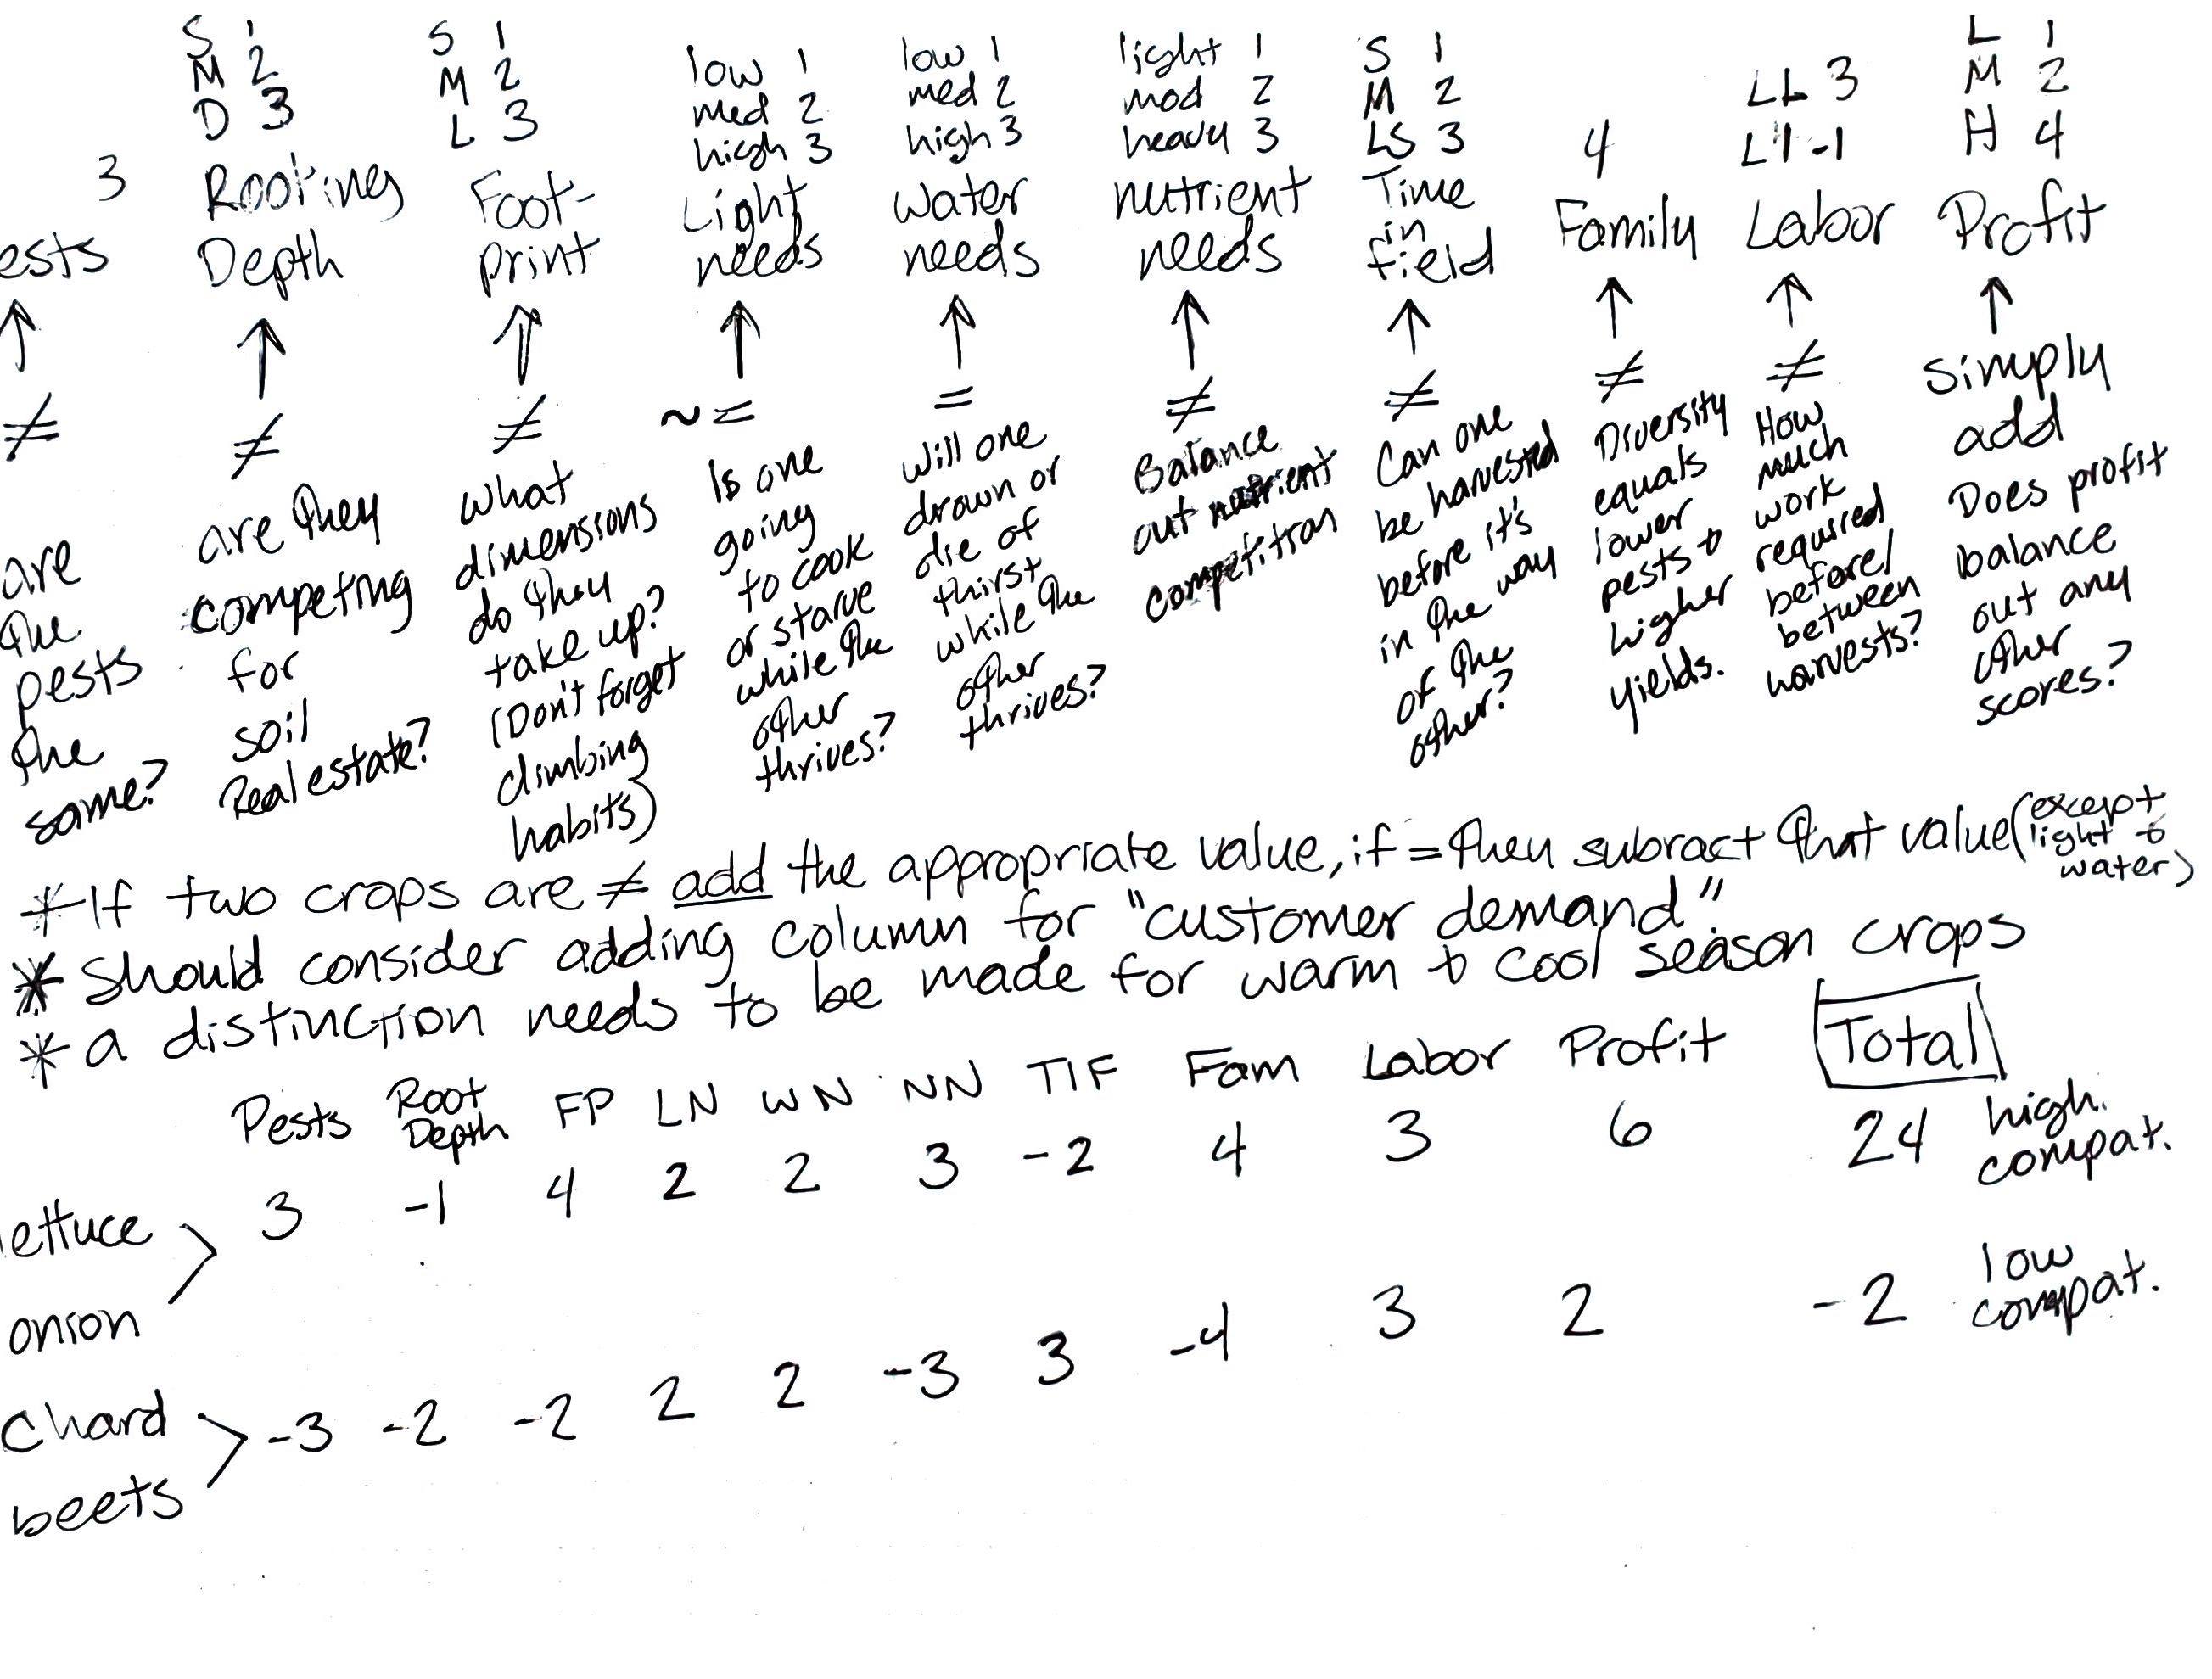 S 1
M 2
D 3
3 Rooting
ests Depth
↑
≠
≠
are the pests the same?
are they competing for soil Real estate?
S 1
M 2
L 3
Foot-
print
≠
what dimensions do they take up? (Don't forget climbing habits)
low 1
med 2
high 3
Light
needs
↑
~=
Is one going to cook or starve while the other thrives?
low 1
med 2
high 3
water
needs
↑
=
will one drown or die of thirst while the other thrives?
light 1
mod 2
heavy 3
nutrient
needs
↑
≠
Balance out nutrient competition
S 1
M 2
LS 3
Time
in
field
↑
≠
Can one be harvested before it's in the way of the other?
4
Family
↑
≠
Diversity equals lower pests & higher yields.
LL 3
Labor
↑
≠
How much work required before/between harvests?
L 1
M 2
H 4
Profit
↑
simply
add
Does profit balance out any other scores?
*If two crops are ≠ add the appropriate value, if = then subract that value (except light & water)
* should consider adding column for "customer demand"
* a distinction needs to be made for warm & cool season crops
Pests Root Depth FP LN WN NN TIF Fam Labor Profit Total
ettuce > 3 -1 4 2 2 3 -2 4 3 6 24 high. compat.
onion
Chard > -3 -2 -2 2 2 -3 3 -4 3 2 -2 low compat.
beets